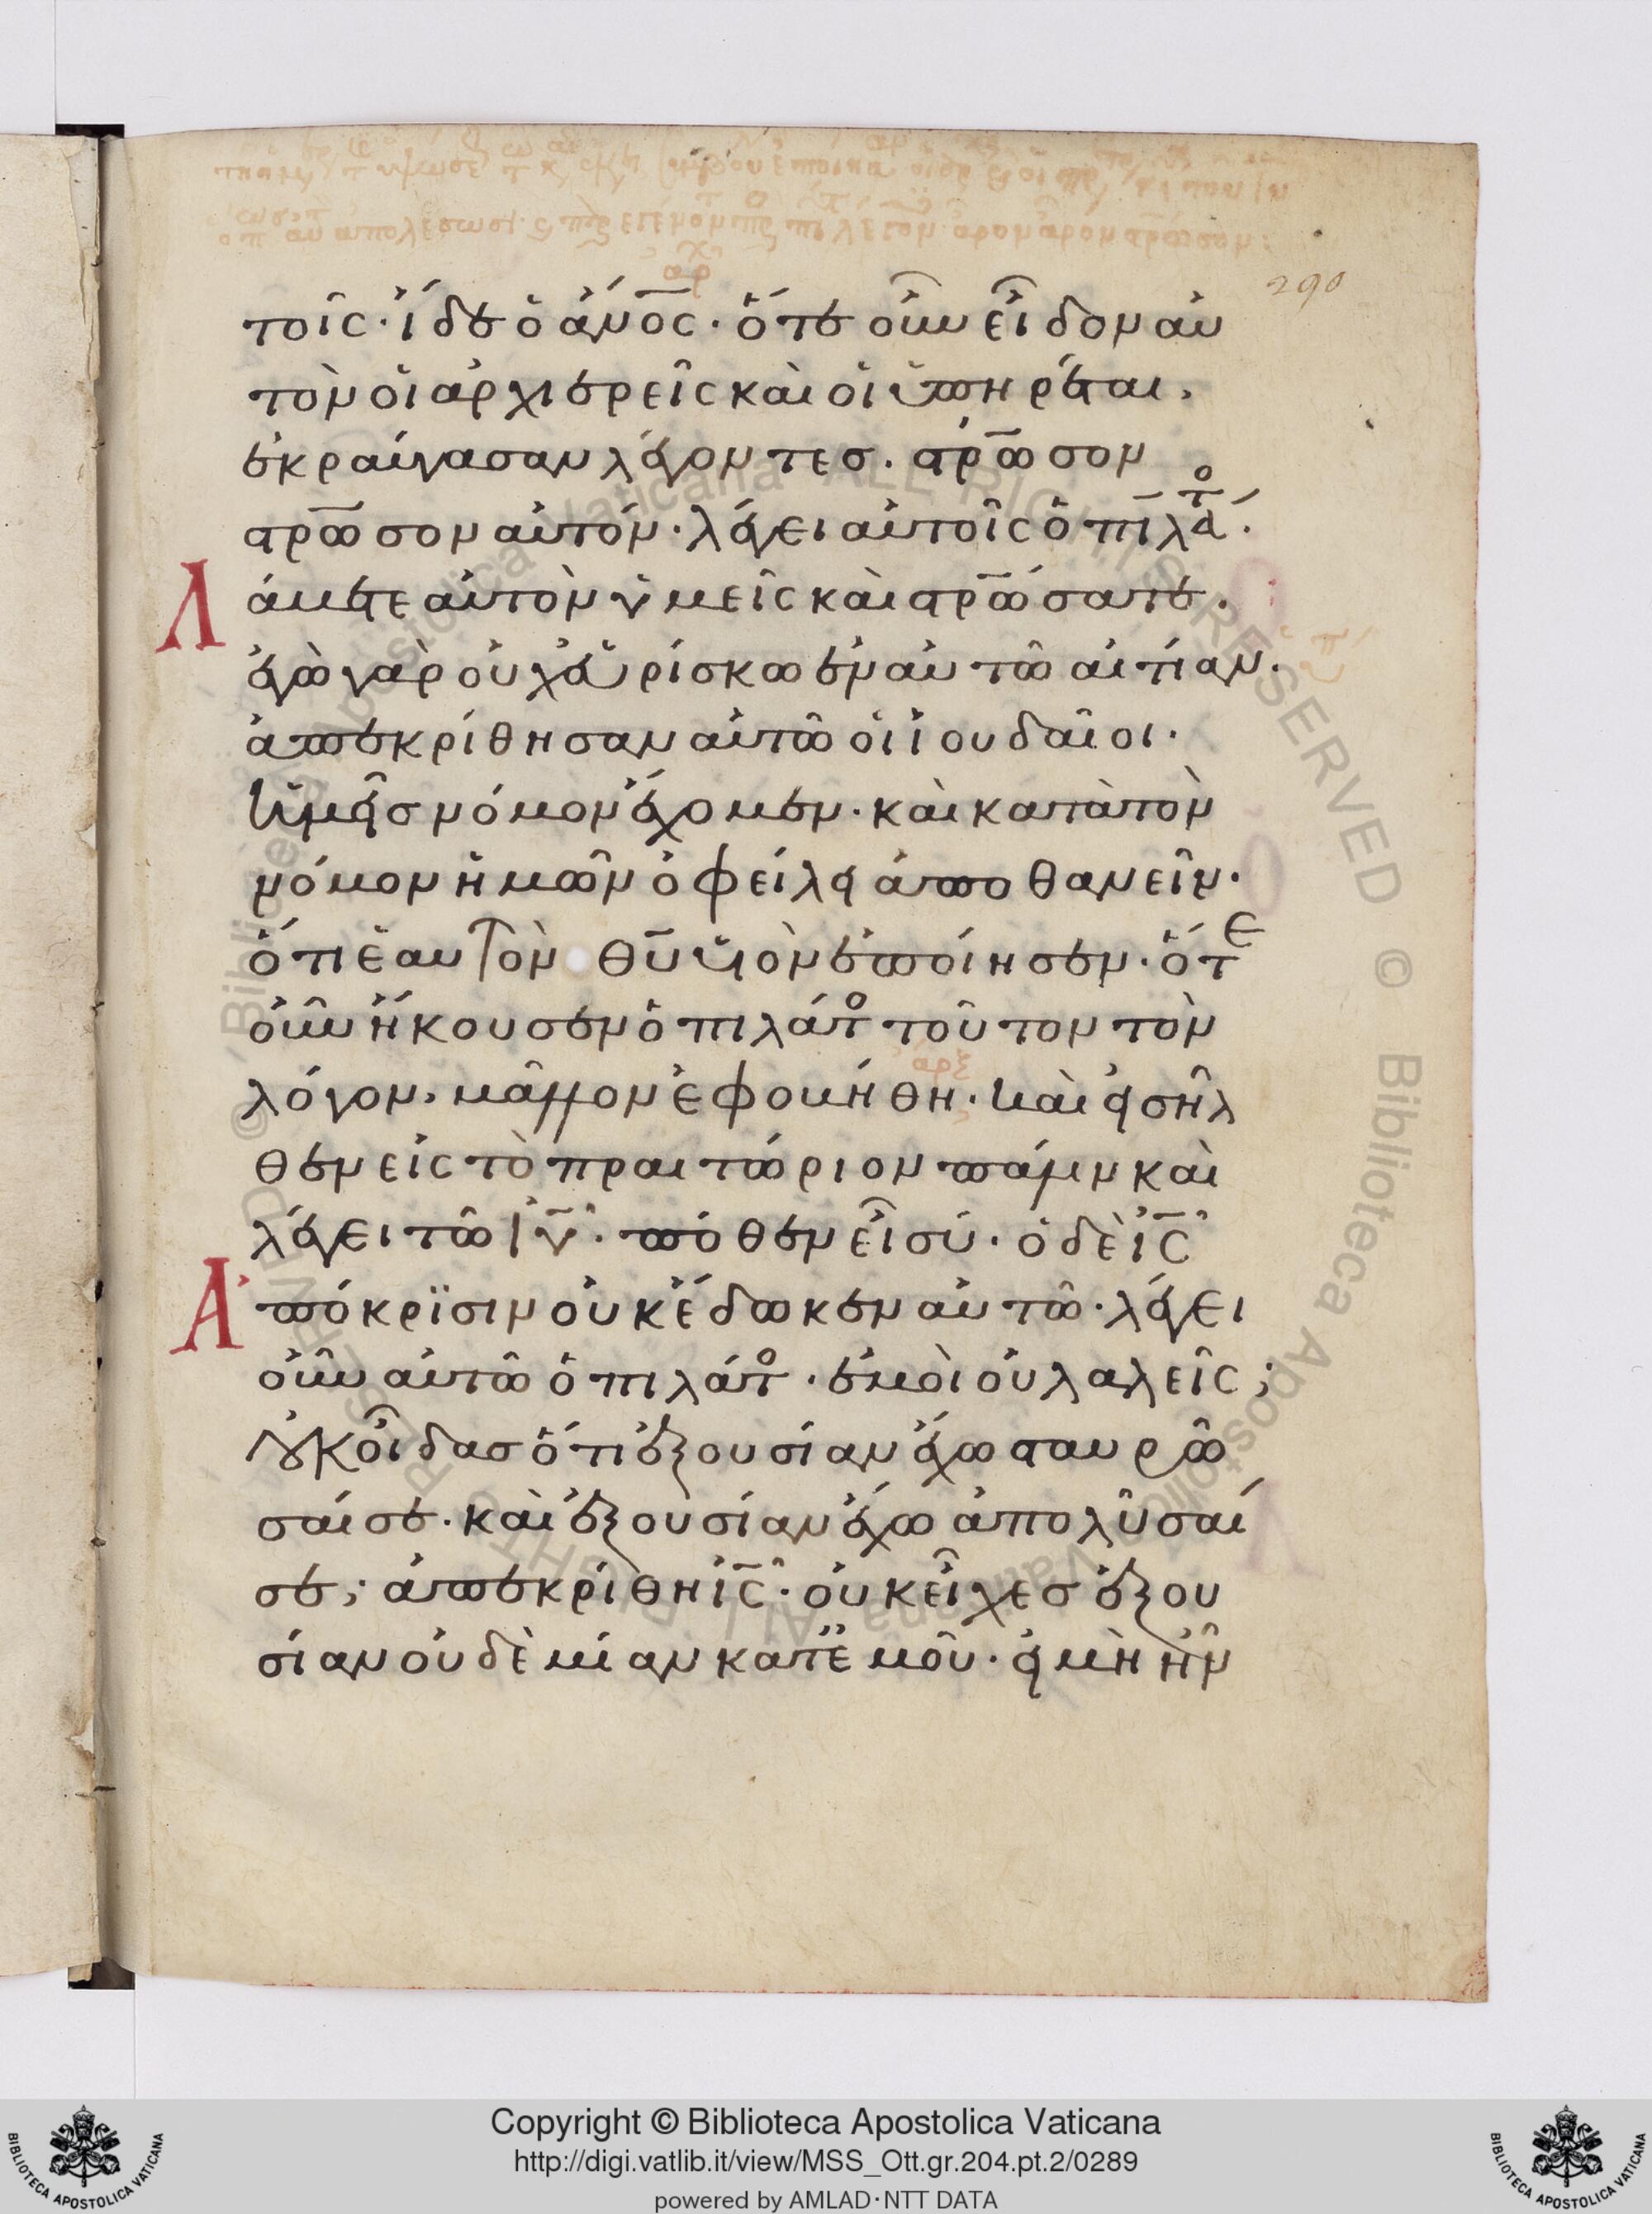 290
τοῖς· ἴδε ὁ ἄν̅ο̅ς̅· ὅτε οὖν εἶδον αὐ
τὸν οἱ ἀρχιερεῖς καὶ οἱ ὑπηρέται,
ἐκραύγασαν λέγοντες. στρ̅ω̅σον
στρ̅ω̅σον αὐτόν· λέγει αὐτοῖς ὁ πιλάτο.
Λάβετε αὐτὸν ὑμεῖς καὶ στρ̅ώ̅σατε.
ἐγὼ γὰρ οὐχ εὑρίσκω ἐν αὐτῶ αἰτίαν.
ἀπεκρίθησαν αὐτῶ οἱ ἰουδαῖοι.
ἡμεῖς νόμον ἔχομεν· καὶ κατὰ τὸν
νόμον ἡμῶν ὀφείλει ἀποθανεῖν.
ὅτι ἑαυτὸν θ̅υ̅ υἱὸν ἐποίησεν· ὅτε
οὖν ἤκουσεν ὁ πιλάτο τοῦτον τὸν
λόγον, μᾶλλον ἐφοβήθη· καὶ εἰσῆλ
θεν εἰς τὸ πραιτώριον πάλιν καὶ
λέγει τῶ ι̅υ̅· πόθεν εἶ σύ· ὁ δὲ ι̅ς̅
Ἀπόκρϊσιν οὐκ ἔδωκεν αὐτῶ· λέγει
οὖν αὐτῶ ὁ πιλάτο· ἐμοὶ οὐ λαλεῖς;
οὐκ οἶδας ὅτι ἐξουσίαν ἔχω σταυρῶ
σαί σε· καὶ ἐξουσίαν ἔχω ἀπολῦσαί
σε; ἀπεκρίθη ι̅ς̅· οὐκ εἶχες ἐξου
σίαν οὐδὲ μίαν κατ ἐμοῦ· εἰ μὴ ἦν
Copyright © Biblioteca Apostolica Vaticana
http://digi.vatlib.it/view/MSS_Ott.gr.204.pt.2/0289
powered by AMLAD·NTT DATA